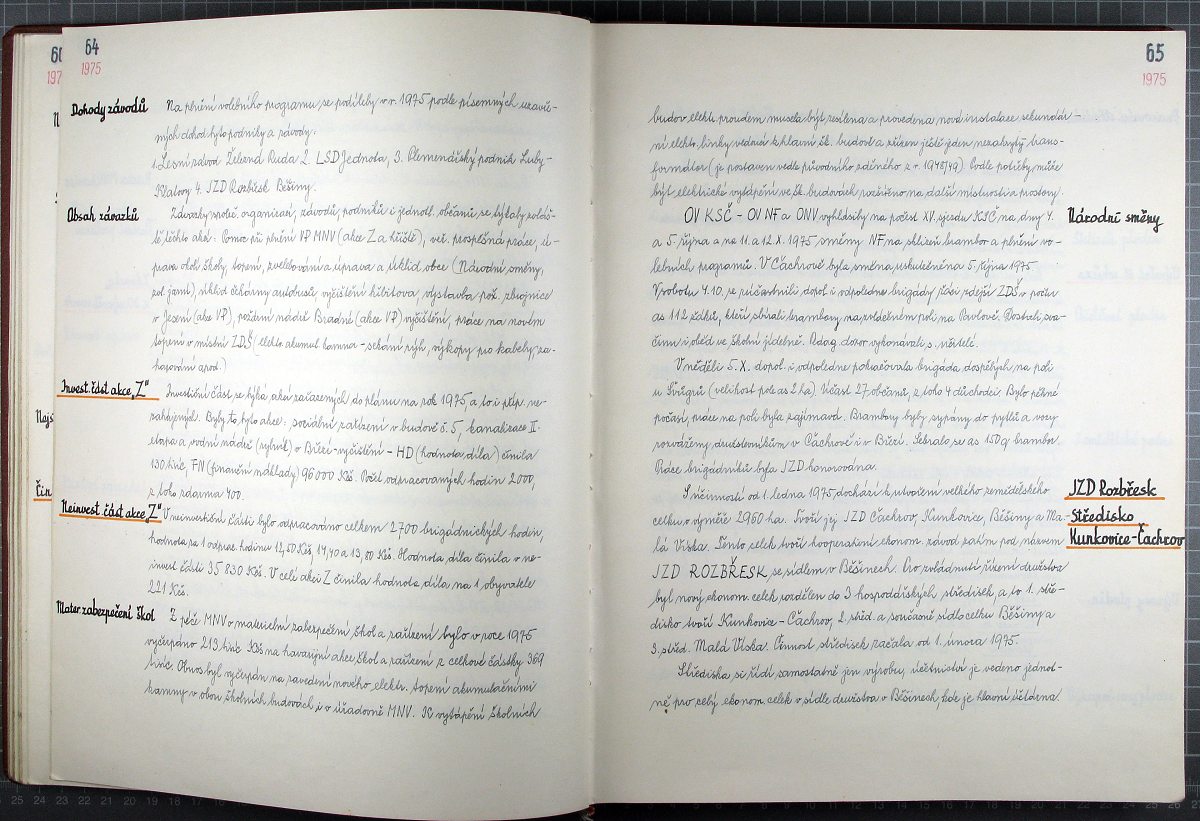 64
1975
Dohody závodů
Na plnění volebního programu se podílely v r. 1975 podle písemných uzavře-
ných dohod tyto podniky a závody:
1. Lesní závod Železná Ruda 2. LSD Jednota, 3. Plemenářský podnik Luby-
Klatovy 4. JZD Rozbřesk Běšiny.
Obsah závazků
Závazky společ. organizací, závodů, podniků i jednotl. občanů se týkaly zvláš-
tě těchto akcí: Pomoc při plnění VP MNV (akce Z a hřiště), veř. prospěšná práce, ú-
prava okolí školy, topení, zvelebování a úprava a úklid obce (Národní směny,
úklid čekárny autobusů, vyčištění hřbitova, výstavba pož. zbrojnice
v Jesení (akce VP), požární nádrž Bradné (akce VP) vyčištění, práce na novém
topení v místní ZDŠ (elektr. akumul. kamna - sekání rýh, výkopy pro kabely, za-
hazování apod.)
Invest. část akce „Z"
Investiční část se týká akcí zařazených do plánu na rok 1975 a to i příp. ne-
zahájených. Byly to tyto akce: sociální zařízení v budově č. 5, kanalizace II.
etapa a vodní nádrž (rybník) v Březí - vyčištění - HD (hodnota díla) činila
130 tisíc, FN (finanční náklady) 96 000 Kčs. Počet odpracovaných hodin 2000,
z toho zdarma 400.
Neinvest. část akce „Z"
V neinvestiční části bylo odpracováno celkem 2700 brigádnických hodin,
hodnota za 1 odprac. hodinu 12,50 Kčs, 14,40 a 13,80 Kčs. Hodnota díla činila v ne-
invest. části 35 830 Kčs. V celé akci Z činila hodnota díla na 1 obyvatele
221 Kčs.
Mater. zabezpečení škol
Z péče MNV o materielní zabezpečení škol a zařízení bylo v roce 1975
vyčerpáno 213 tisíc Kčs na havarijní akce škol a zařízení z celkové částky 369
tisíc. Obnos byl vyčerpán na zavedení nového elektr. topení akumulačními
kamny v obou školních budovách i v úřadovně MNV. K vytápění školních
65
1975
budov elektr. proudem musela být zesílena a provedena nová instalace sekundár-
ní elektr. linky vedoucí k hlavní šk. budově a zřízen ještě jeden nezakrytý trans-
formátor (je postaven vedle původního zděného z r. 1948/49). Podle potřeby může
být elektrické vytápění ve šk. budovách rozšířeno na další místnosti a prostory.
Národní směny
OV KSČ - OV NF a ONV vyhlásily na počest XV. sjezdu KSČ na dny 4.
a 5. října a na 11. a 12. X. 1975 směny NF na sklizeň brambor a plnění vo-
lebních programů. V Čachrově byla směna uskutečněna 5. října 1975.
V sobotu 4.10. se zúčastnili dopol. i odpoledne brigády žáci zdejší ZDŠ v počtu
as 112 žáků, kteří sbírali brambory na zvláštním poli na Pavlově. Dostali sva-
činu i oběd ve školní jídelně. Pedag. dozor vykonávali s. učitelé.
V neděli 5. X. dopol. i odpoledne pokračovala brigáda dospělých na poli
u Švígrů (velikost pole as 2 ha). Účast 27 občanů, z toho 4 důchodci. Bylo pěkné
počasí, práce na poli byla zajímavá. Brambory byly sypány do pytlů a vozy
rozváženy družstevníkům v Čachrově i v Březí. Sebralo se as 150 q brambor.
Práce brigádníků byla JZD honorována.
JZD Rozbřesk
Středisko
Kunkovice-Čachrov
S účinností od 1. ledna 1975 dochází k utvoření velkého zemědělského
celku o výměře 2960 ha. Tvoří jej JZD Čachrov, Kunkovice, Běšiny a Ma-
lá Víska. Tento celek tvoří kooperativní ekonom. závod zatím pod názvem
JZD ROZBŘESK, se sídlem v Běšinech. Pro zvládnutí řízení družstva
byl nový ekonom. celek rozdělen do 3 hospodářských středisek, a to 1. stře-
disko tvoří Kunkovice - Čachrov, 2. střed. a současně sídlo celku Běšiny a
3. střed. Malá Víska. Činnost středisek začala od 1. února 1975.
Střediska si řídí samostatně jen výrobu, účetnictví je vedeno jednot-
ně pro celý ekonom. celek v sídle družstva v Běšinech, kde je hlavní účtárna.